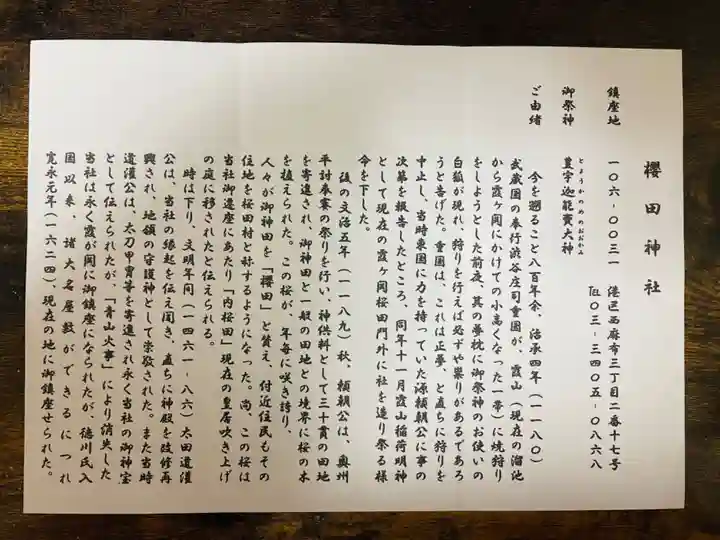 櫻田神社
鎮座地　一〇六-〇〇三一　港区西麻布三丁目二番十七号
℡〇三-三四〇五-〇八六八
とようかのめのおおかみ
御祭神　豊宇迦能賣大神
ご由緒
今を遡ること八百年余、治承四年（一一八〇）
武蔵国の奉行渋谷庄司重国が、霞山（現在の溜池
から霞ヶ関にかけての小高くなった一帯）に焼狩り
をしようとした前夜、其の夢枕に御祭神のお使いの
白狐が現れ、狩りを行えば必ずや祟りがあるであろ
うと告げた。重国は、これは正夢、と直ちに狩りを
中止し、当時東国に力を持っていた源頼朝公に事の
次第を報告したところ、同年十一月霞山稲荷明神
として現在の霞ヶ関桜田門外に社を造り祭る様
命を下した。
後の文治五年（一一八九）秋、頼朝公は、奥州
平討奉賽の祭りを行い、神供料として三十貫の田地
を寄進され、御神田と一般の田地との境界に桜の木
を植えられた。この桜が、年毎に咲き誇り、
人々が御神田を「櫻田」と賛え、付近住民もその
住地を桜田村と称するようになった。尚、この桜は
当社御遷座にあたり「内桜田」現在の皇居吹き上げ
の庭に移されたと伝えられる。
時は下り、文明年間（一四六一-八六）太田道灌
公は、当社の縁起を伝え聞き、直ちに神殿を改修再
興され、地領の守護神として崇敬された。また当時
道灌公は、太刀甲冑等を寄進され永く当社の御神宝
として伝えられたが、「青山火事」により消失した
当社は永く霞が関に御鎮座になられたが、徳川氏入
国以来、諸大名屋敷ができるにつれ
寛永元年（一六二四）、現在の地に御鎮座せられた。